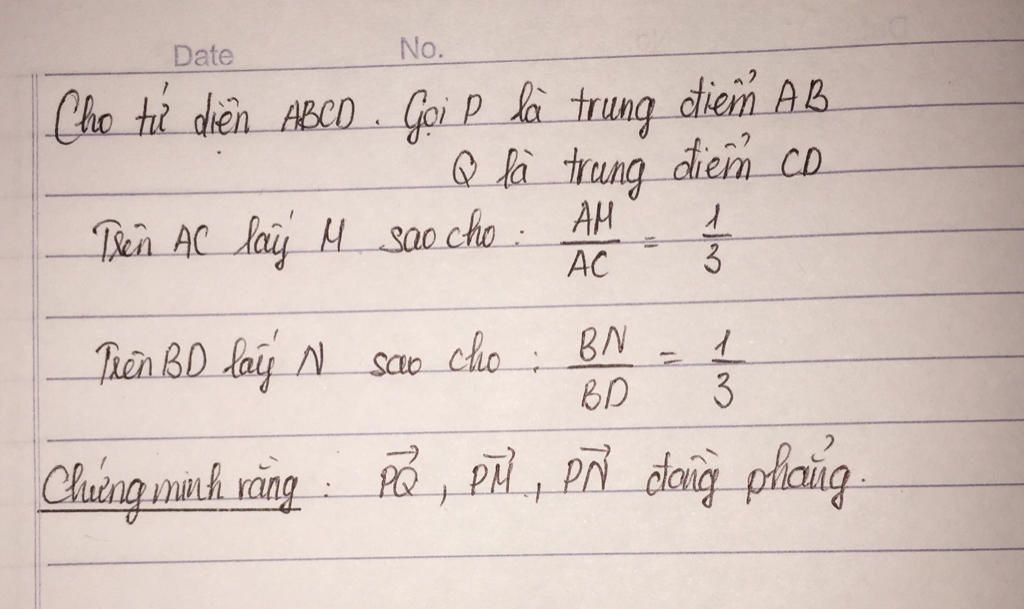 Date No.
Cho tứ diện ABCD. Gọi P là trung điểm AB
Q là trung điểm CD
Trên AC lấy M sao cho : AM/AC = 1/3
Trên BD lấy N sao cho : BN/BD = 1/3
Chứng minh rằng : PQ⃗ , PM⃗ , PN⃗ đồng phẳng.